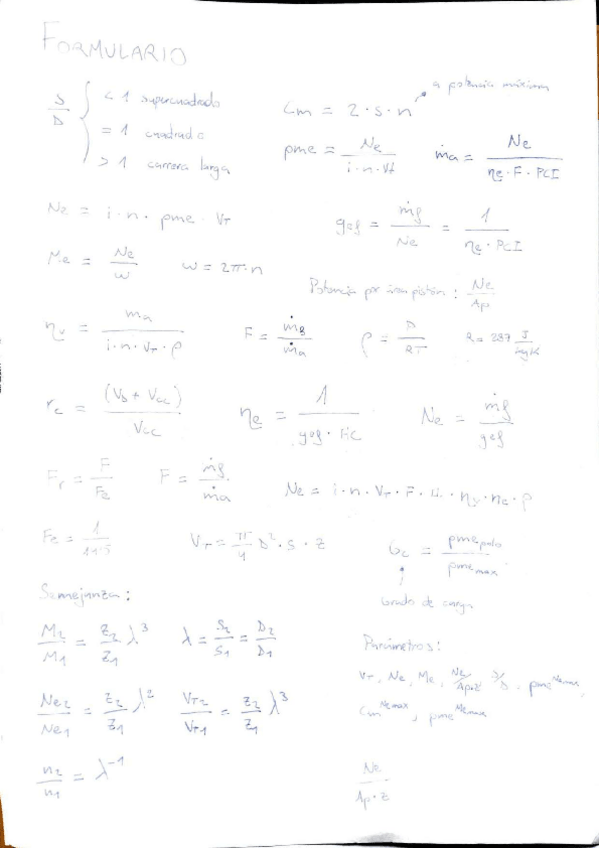 FORMULARIO
S/D { < 1 supercuadrado
= 1 cuadrado
> 1 carrera larga
cm = 2 · s · n → a potencia máxima
pme = Ne / (i · n · Vt)
ṁa = Ne / (ηe · F · PCI)
Ne = i · n · pme · VT
gef = ṁf / Ne = 1 / (ηe · PCI)
Me = Ne / ω
ω = 2π · n
Potencia por área pistón : Ne / Ap
ηv = ma / (i · n · VT · ρ)
F = ṁf / ṁa
R = 287 J / kgK
rc = (VD + Vcc) / Vcc
ηe = 1 / (gef · HC)
Ne = ṁf / gef
Fr = F / Fe
F = ṁf / ṁa
Fe = 1 / 14.5
VT = π/4 D² · s · z
Gc = pme / pme max
Grado de carga
Semejanza :
M2 / M1 = z2 / z1 λ³
λ = S2 / S1 = D2 / D1
Parámetros :
VT, Ne, Me, Ne / Ap·z, S/D, pme Nemax,
cm Nemax, pme Memax
Ne2 / Ne1 = z2 / z1 λ²
VT2 / VT1 = z2 / z1 λ³
n2 / n1 = λ⁻¹
Ne / Ap · z